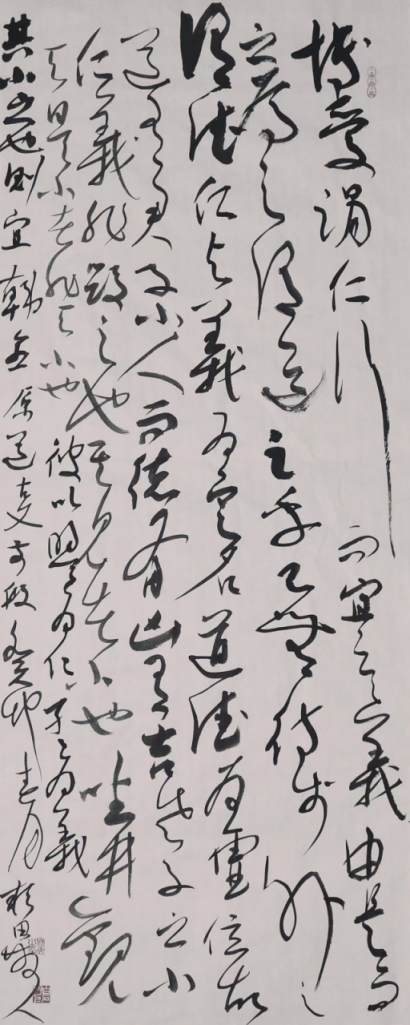 博愛謂仁行而宜之謂義由是而
之焉之謂道足乎己無待於外之
謂德仁與義為定名道德為虛位故
道有君子小人而德有凶有吉老子之小
仁義非毀之也其見者小也坐井觀
天曰天小者非天小也彼以煦煦為仁孑孑為義
其小之也則宜韓愈原道文首段癸卯春月田人